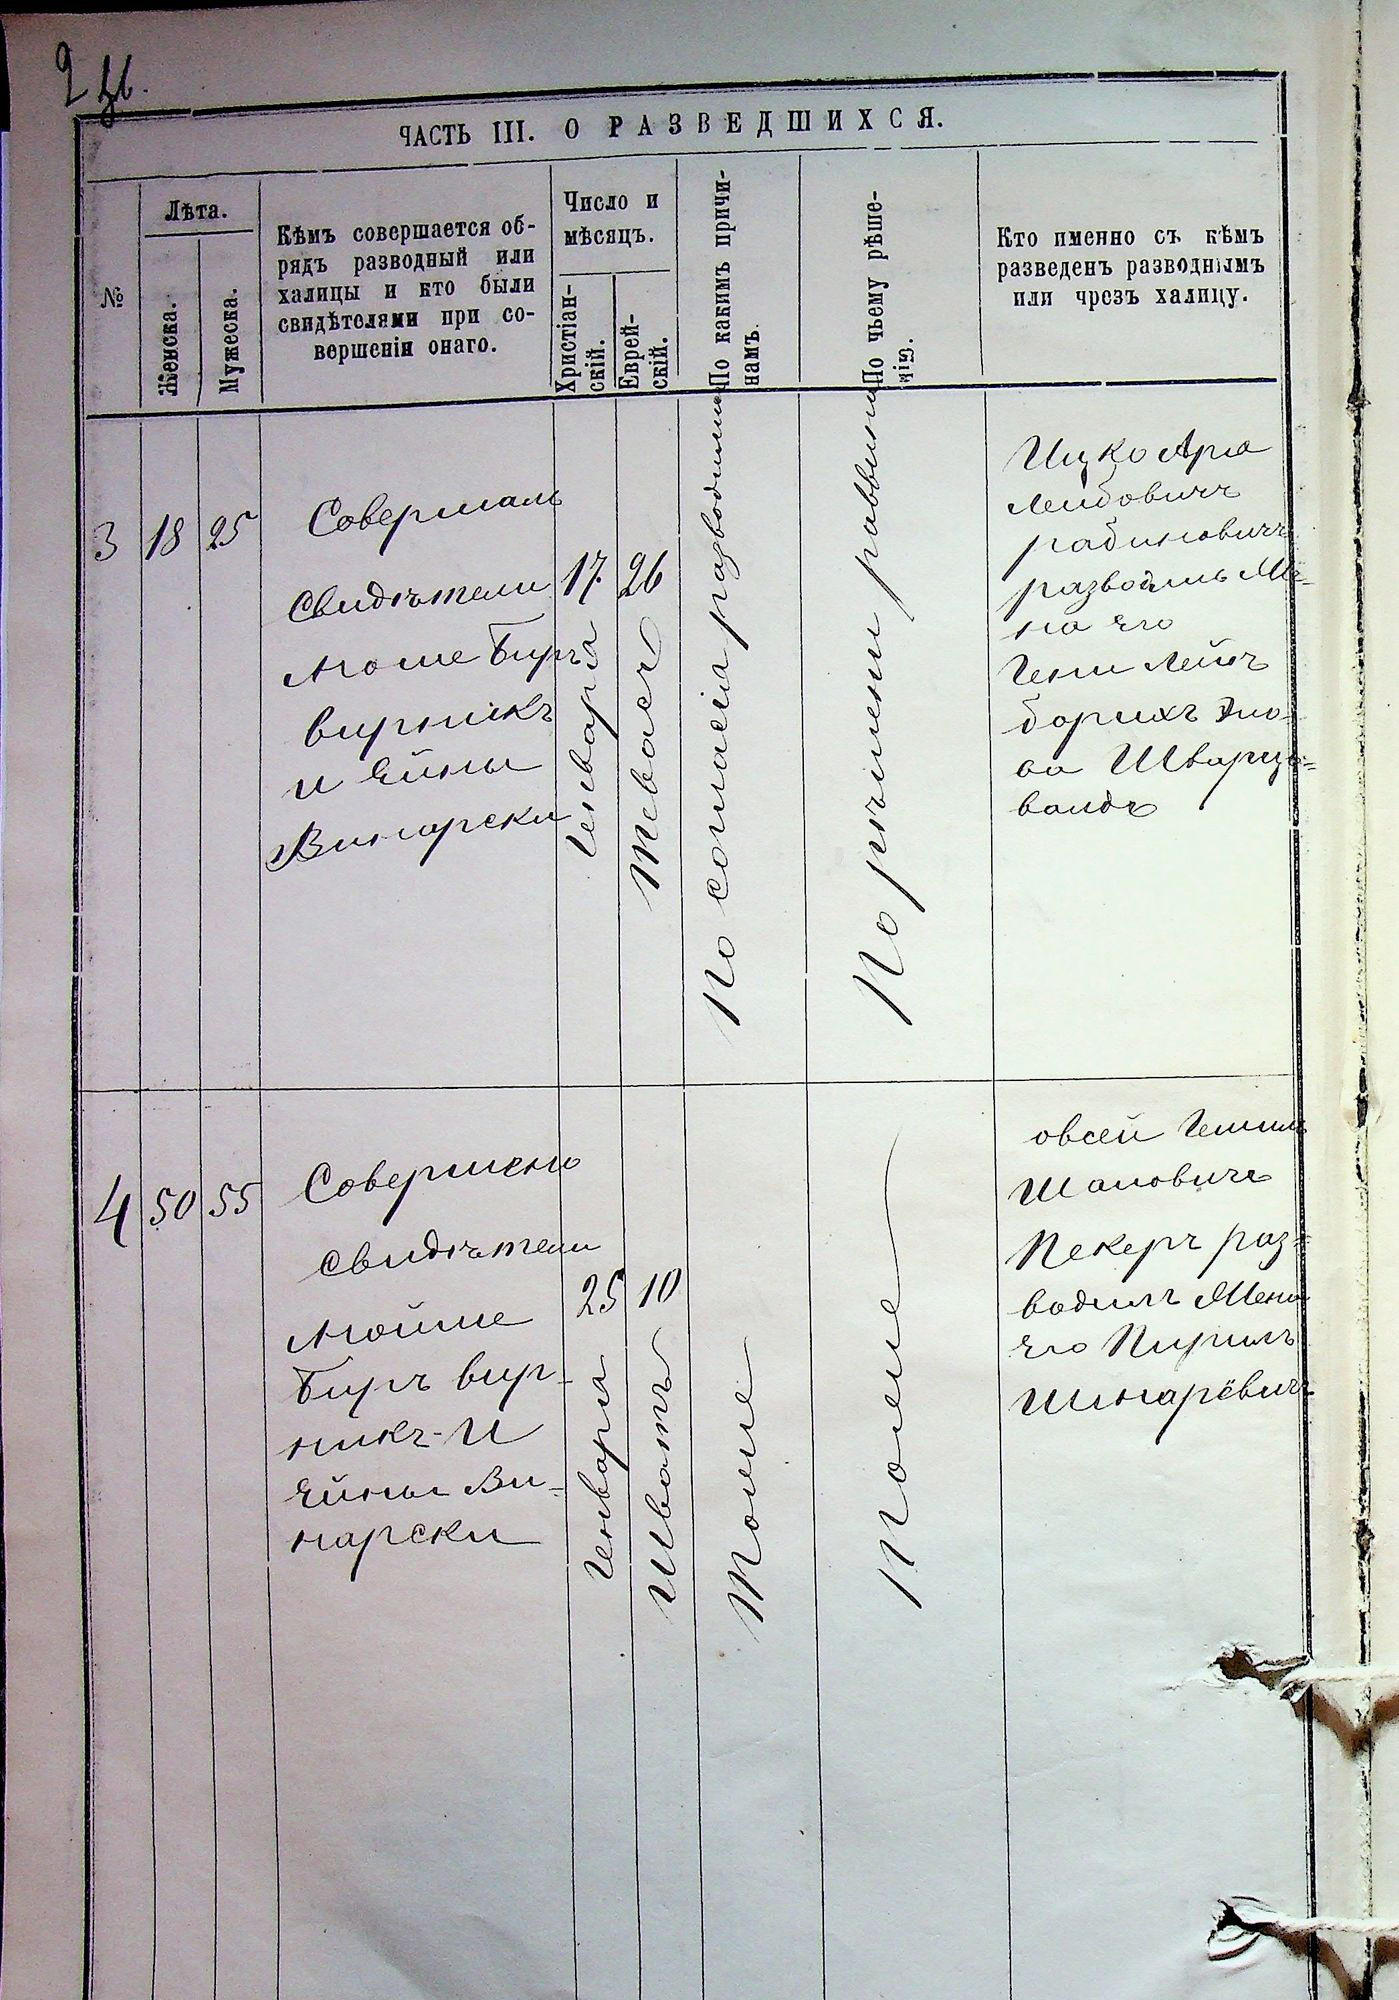 2 об.
ЧАСТЬ III. О РАЗВЕДШИХСЯ.
№
Лѣта.
Женска.
Мужеска.
Кѣмъ совершается об-
рядъ разводный или
халицы и кто были
свидѣтелями при со-
вершеніи онаго.
Число и
мѣсяцъ.
Христіан-
скій.
Еврей-
скій.
По какимъ причи-
намъ.
По чьему рѣше-
нію.
Кто именно съ кѣмъ
разведенъ разводнымъ
или чрезъ халицу.
3
18
25
Совершалъ
Свидѣтели
Моше Биръ
вирникъ
и Ейны
Винарски
17
Генваря
26
Теваса
По согласіа разводились
По рѣшени раввина
Ицко Аріа
Лейбовичъ
рабиновичъ
разводилъ Же-
на его
Гени Лейе
Шварцъ-
вальдъ
4
50
55
Совершено
свидѣтели
Мойше
Биръ вир-
никъ-И
Ейны Ви-
нарски
25
Генваря
10
Шватъ
Тоже
Тоже
овсей
Шаповичъ
Пекеръ раз-
водилъ Жена
его